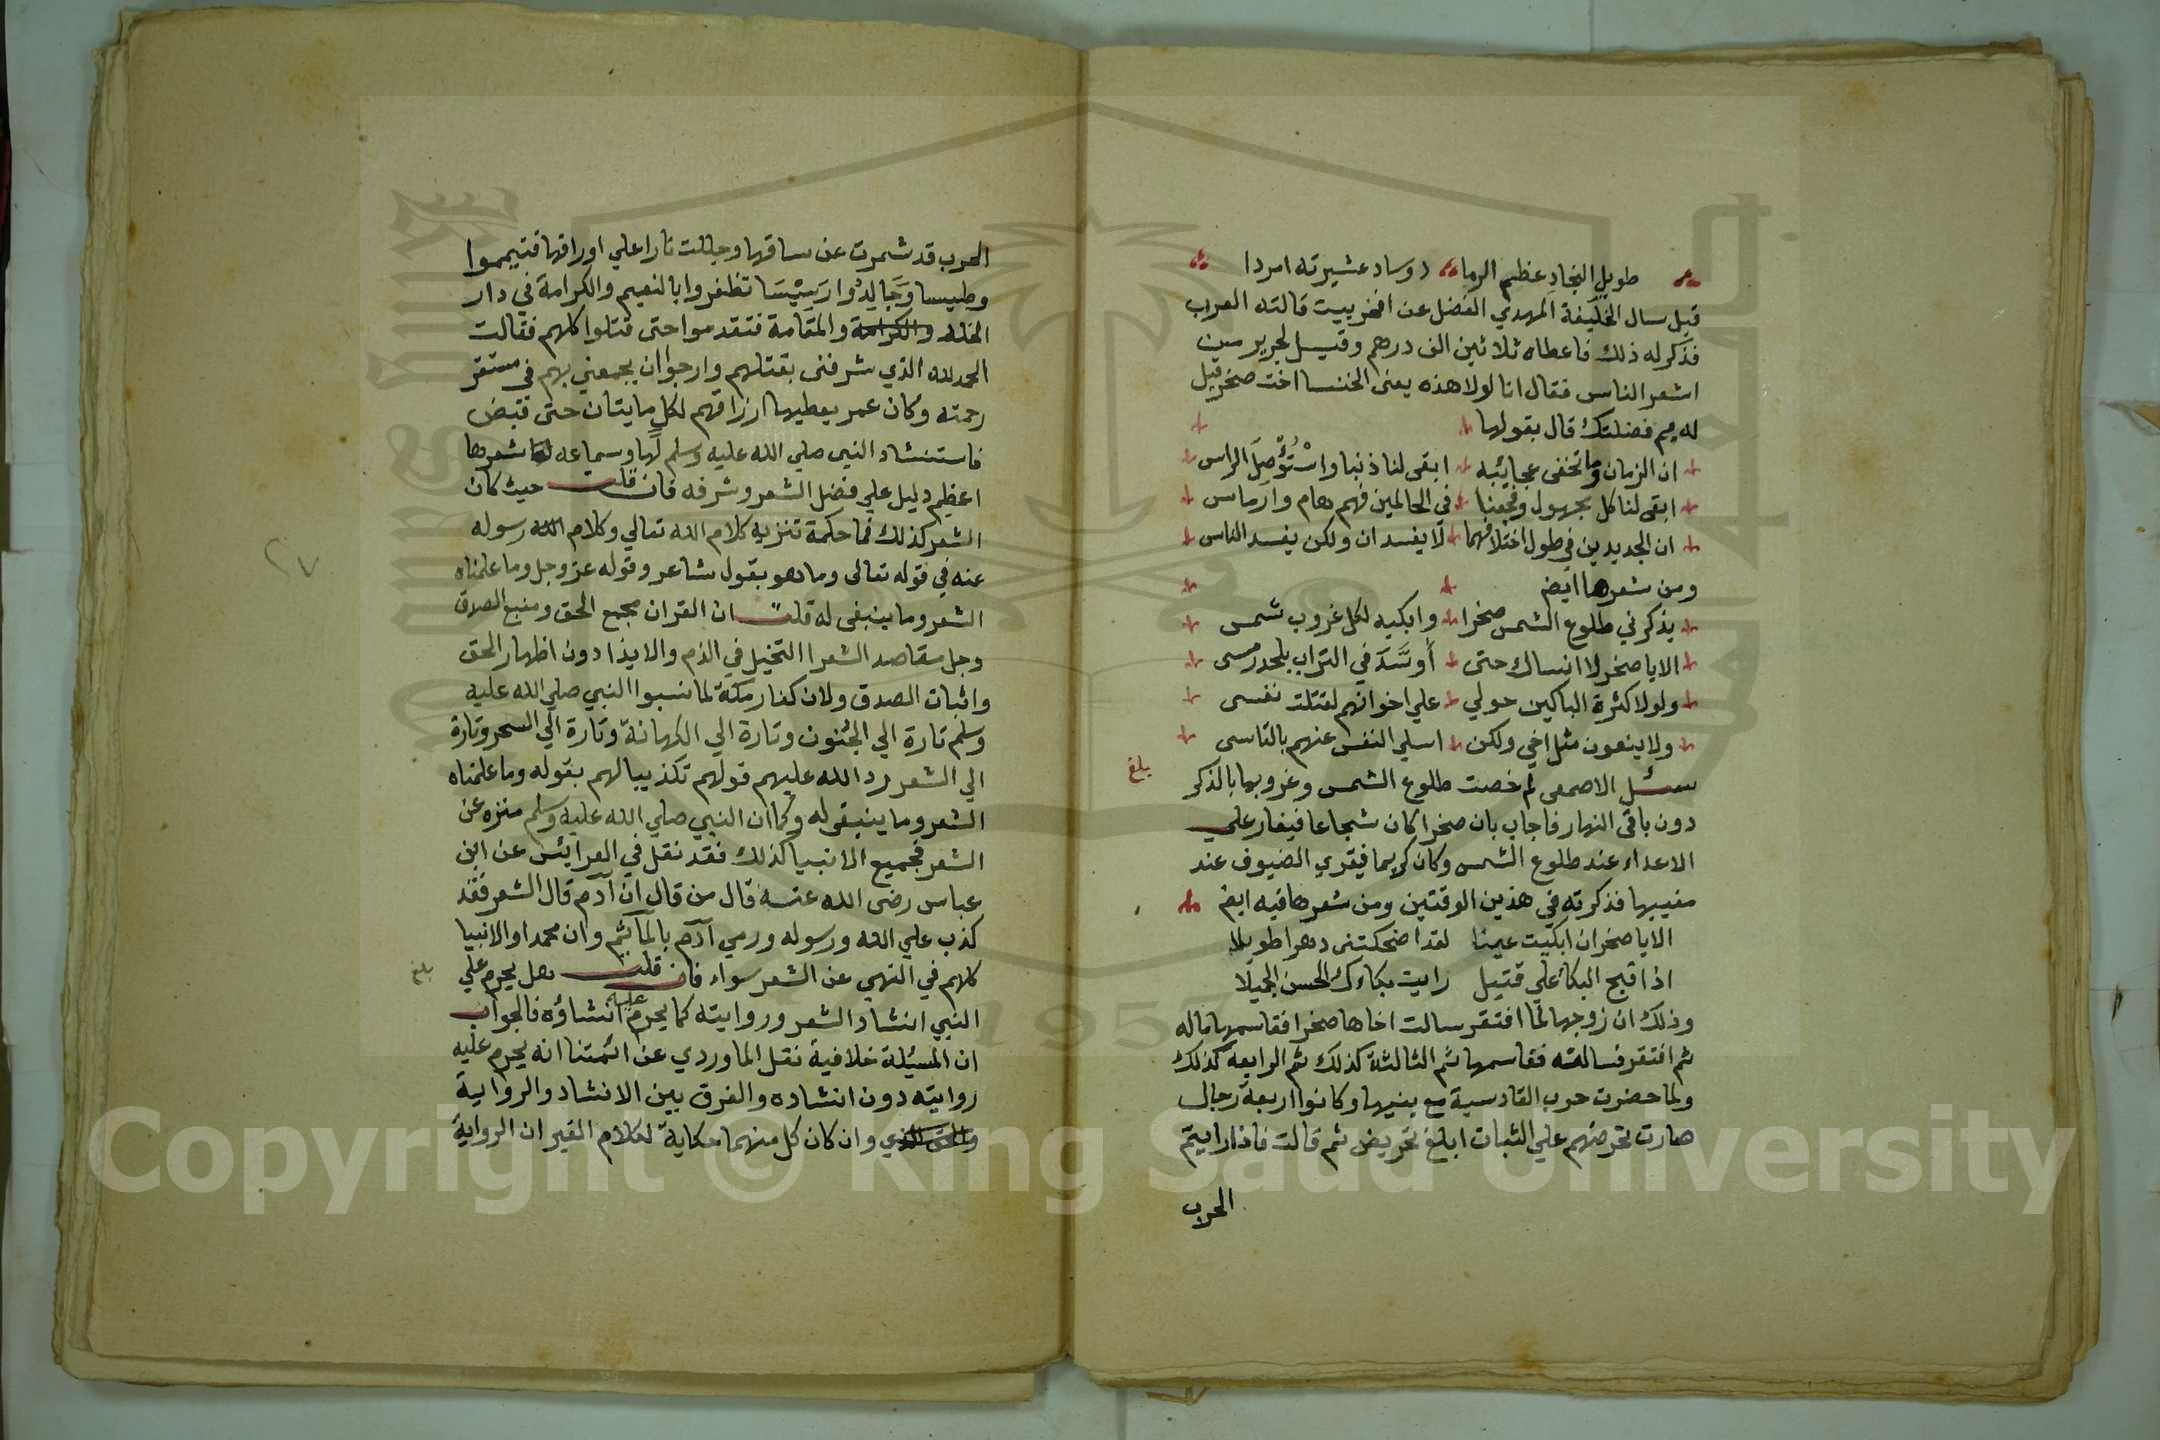 طويل النجاد عظيم الرما د وساد عشيرته امردا
قيل سال الخليفة المهدي المفضل عن افخر بيت قالته العرب
فذكر له ذلك فاعطاه ثلاثين الف درهم وقيل لجرير من
اشعر الناس فقال انا لولا هذه يعنى الخنسا اخت صخر قيل
له بم فضلتك قال بقولها
ان الزمان وما تخفى عجايبه ابقى لنا ذنبا واسْتُؤْصِلَ الراس
ابقى لنا كل مجهول وفجعنا في الحالمين فهم هام وارماس
ان الجديدين في طول اختلافهما لا يفسدان ولكن يفسد الناس
ومن شعرها ايضا
يذكرني طلوع الشمس صخرا وابكيه لكل غروب شمس
الا يا صخر لا انساك حتى أُوسَّدَ في التراب بلحد رمسى
ولولا كثرة الباكين حولي علي اخوانهم لقتلت نفسى
ولا ينعون مثل اخي ولكن اسلي النفس عنهم بالتاسى
سئل الاصمعى لم خصت طلوع الشمس وغروبها بالذكر
بلغ
دون باقي النهار فاجاب بان صخرا كان شجاعا فيغار علي
الاعداء عند طلوع الشمس وكان كريما فيقري الضيوف عند
مغيبها فذكرته في هذين الوقتين ومن شعرها فيه ايضا
الا يا صخر ان ابكيت عينا لقد اضحكتنى دهرا طويلا
اذا قبح البكا علي قتيل رايت بكاءك الحسن الجميلا
وذلك ان زوجها لما افتقر سالت اخاها صخرا فقاسمها ماله
ثم افتقر فسالته فقاسمها ثم الثالثة كذلك ثم الرابعة كذلك
ولما حضرت حرب القادسية مع بنيها وكانوا اربعة رجال
صارت تحرضهم علي الثبات ابلغ تحريض ثم قالت فاذا رايتم
الحرب
الحرب قد شمرت عن ساقها وجللت نارا علي اوراقها فتيمموا
وطيسا وَجَالِدُوا رَسِيْسَا تظفروا بالنعيم والكرامة في دار
الخلد والكرامة والمقامة فتقدموا حتى قتلوا كلهم فقالت
الحمد لله الذي شرفنى بقتلهم وارجوا ان يجمعني بهم في مستقر
رحمته وكان عمر يعطيها ارزاقهم لكل مايتان حتى قبض
فاستنشاد النبي صلي الله عليه وسلم لها وسماعه شعرها
اعظم دليل علي فضل الشعر وشرفه فان قلت حيث كان
الشعر كذلك فما حكمة تنزيه كلام الله تعالي وكلام رسوله
عنه في قوله تعالى وما هو بقول شاعر وقوله عز وجل وما علمناه
الشعر وما ينبغى له قلت ان القران مجمع الحق ومنبع الصدق
وجل مقاصد الشعرا التخيل في الذم والايذا دون اظهار الحق
واثبات الصدق ولان كفار مكة لما نسبوا النبي صلي الله عليه
وسلم تارة الي الجنون وتارة الي الكهانة وتارة الي السحر وتارة
الي الشعر رد الله عليهم قولهم تكذيبا لهم بقوله وما علمناه
الشعر وما ينبغى له وكما ان النبي صلي الله عليه وسلم منزه عن
الشعر فجميع الانبيا كذلك فقد نقل في العرايس عن ابن
عباس رضى الله عنه قال من قال ان آدم قال الشعر فقد
كذب علي الله ورسوله ورمي آدم بالمآثم وان محمدا والانبيا
كلهم في النهي عن الشعر سواء فان قلت هل يحرم علي
بلغ
النبي انشاد الشعر وروايته كما يحرم عليه انشاؤه فالجواب
ان المسئلة خلافية نقل الماوردي عن ائمتنا انه يحرم عليه
روايته دون انشاده والفرق بين الانشاد والرواية
وان كان كل منهما حكاية لكلام الغير ان الرواية
٢٧
Copyright © King Saud University
1957